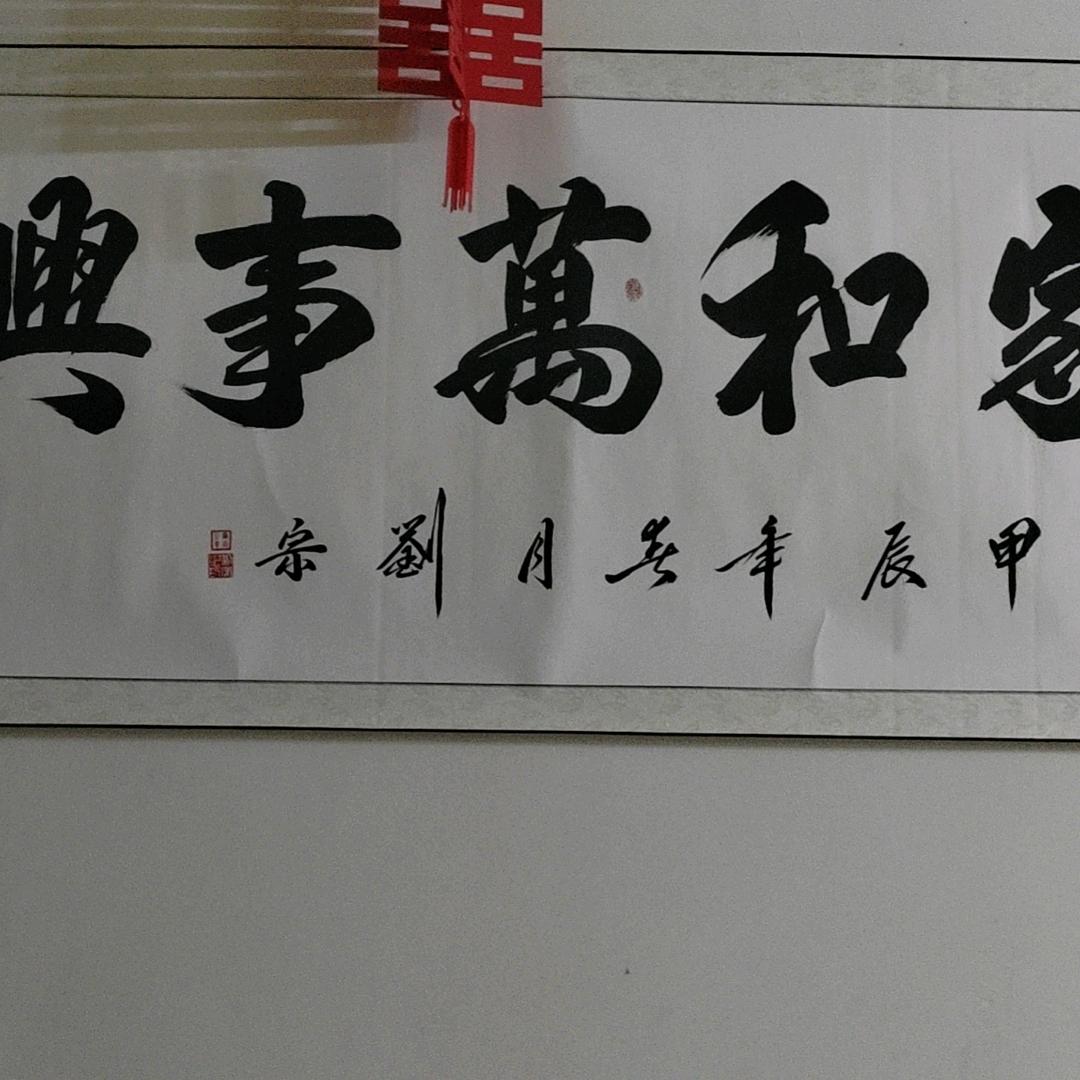 家和萬事興
甲辰年春月劉宗
囍